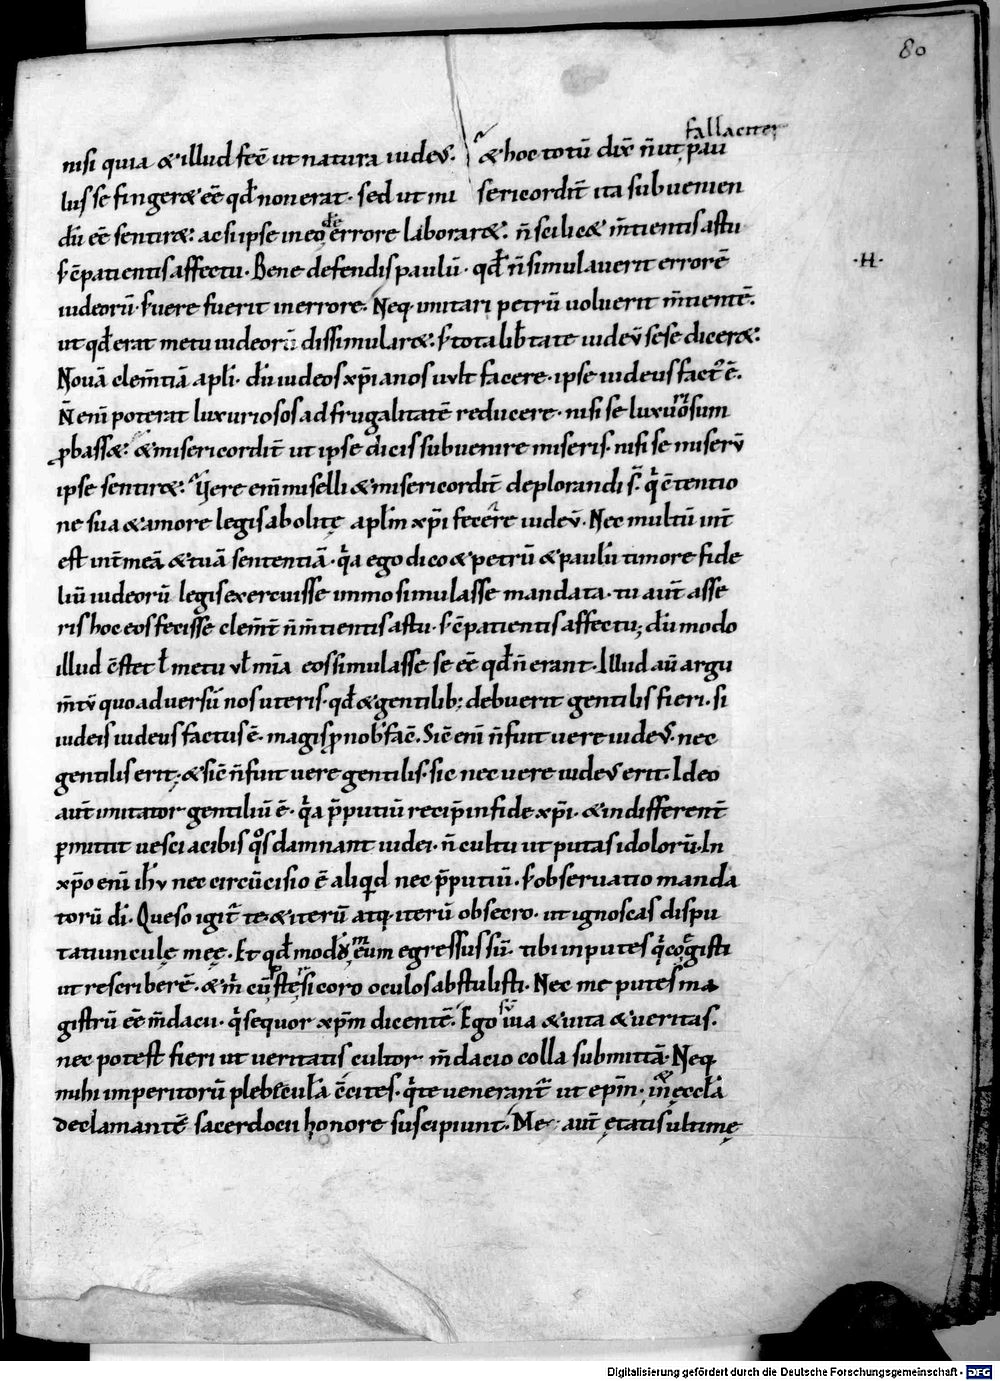 80
fallaciter
nisi quia & illud fec̄ ut natura iudeꝰ. & hoc totū dix̄ n̄ ut pau
lus se finger& eē qd̄ non erat. sed ut mi sericordit̄ ita subuenien
dū eē sentir&. ac si ipse in eo de errore laborar&. n̄ scilic& m̄tientis astu
s; c̄patientis affectu. Bene defendis paulū. qd̄ n̄ simulauerit errorē
·H·
iudeorū. s; uere fuerit in errore. Neq. imitari petrū uoluerit m̄tientē.
ut qd̄ erat metu iudeorū dissimular&. s; tota lib̄tate iudeū sese dicer&.
Nouā clem̄tiā apl̄i. dū iudeos xp̄ianos uult facere. ipse iudeus factꝰ ē.
N̄ eni poterat luxuriosos ad frugalitatē reducere. nisi se luxuriosum
ꝓbass&. & misericordit̄ ut ipse dicis subuenire miseris. nisi se miserū
ipse sentir&. Vere eni miselli & misericordit̄ deplorandi s̄. qͥ c̄tentio
ne sua & amore legis abolitę apl̄m xp̄i fecere iudeū. Nec multū int̄
est int̄ meā & tuā sententiā. qͥa ego dico & petrū & paulū timore fide
liū iudeorū legis exercuisse immo simulasse mandata. tu aut̄ asse
ris hoc eos fecisse clem̄t̄ n̄ m̄tientis astu. s; c̄patientis affectu; dū modo
illud c̄stet ł metu uł mīa eos simulasse se eē qd̄ n̄ erant. Illud aū argu
m̄tū quo aduersū nos uteris. qd̄ & gentilib; debuerit gentilis fieri. si
iudeis iudeus factus ē. magis ꝓ nob̄ fac̄. Sic̄ eni n̄ fuit uere iudeꝰ. nec
gentilis erit; & sic̄ n̄ fuit uere gentilis. sic nec uere iudeꝰ erit. Ideo
aut̄ imitator gentiliū ē. qͥa p̄putiū recip̄ in fide xp̄i. & indifferent̄
ꝑmittit uesci acibis qͦs damnant iudei. n̄ cultu ut putas idolorū. In
xp̄o eni ih̄u nec circūcisio ē aliqͥd nec p̄putiū. s; obseruatio manda
torū dī. Queso igit̄ te. & iterū atq. iterū obsecro. ut ignoscas dispu
tatiunculę meę. Et qd̄ modū meum egressus sū. tibi inputes qͥ coegisti
ut rescriberē. & m̄ cū stesicoro oculos abstulisti. Nec me putes ma
gistrū eē m̄dacii. qͥ sequor xp̄m dicentē. Ego sū uia & uita & ueritas.
nec potest fieri ut ueritatis cultor m̄dacio colla submittā. Neq.
mihi imperitorū plebeculā c̄cites. qͥ te uenerant̄ ut ep̄m. & in ęccl̄a
declamantē sacerdocii honore suscipiunt. Me aut̄ ętatis ultimę
Digitalisierung gefördert durch die Deutsche Forschungsgemeinschaft - DFG